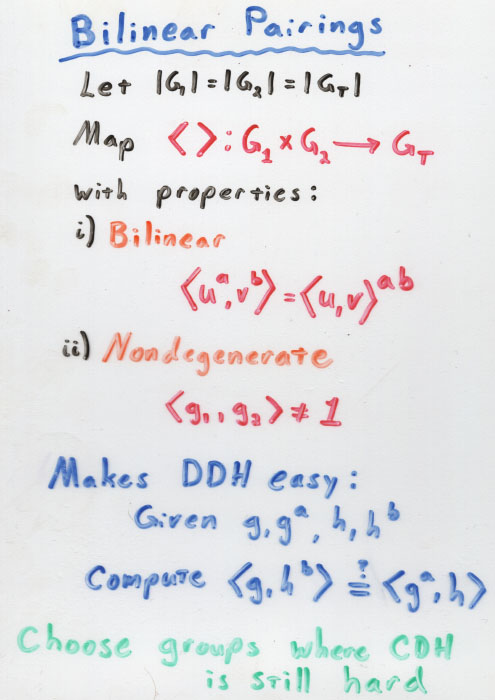 Bilinear Pairings
Let |G₁| = |G₂| = |G_T|
Map < > : G₁ × G₂ → G_T
with properties:
i) Bilinear
<uᵃ, vᵇ> = <u, v>ᵃᵇ
ii) Nondegenerate
<g₁, g₂> ≠ 1
Makes DDH easy:
Given g, gᵃ, h, hᵇ
Compute <g, hᵇ> ≟ <gᵃ, h>
Choose groups where CDH
is still hard